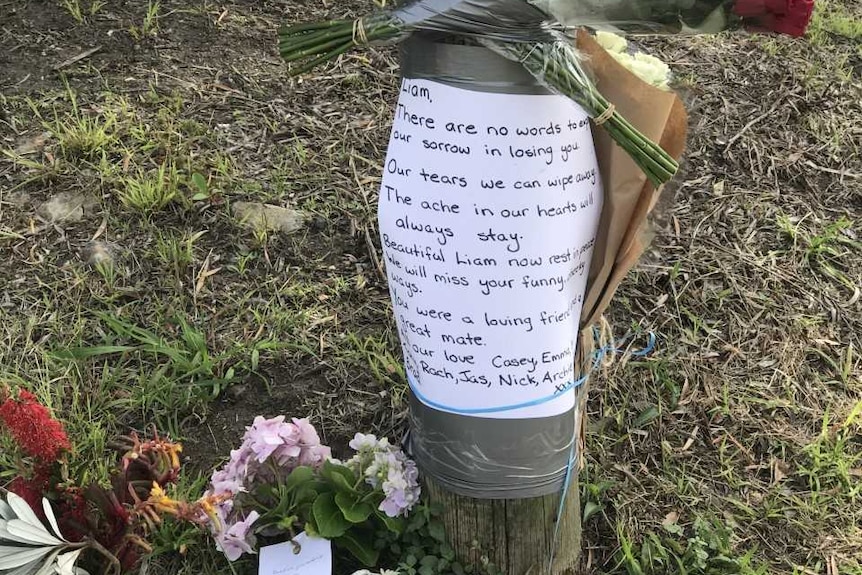 Liam,
There are no words to
our sorrow in losing you
Our tears we can wipe away.
The ache in our hearts will
always stay.
Beautiful Liam now rest in peace
We will miss your funny, cheeky
ways.
You were a loving friend and a
great mate.
our love Casey, Emma,
Rach, Jas, Nick, Archie
xxx